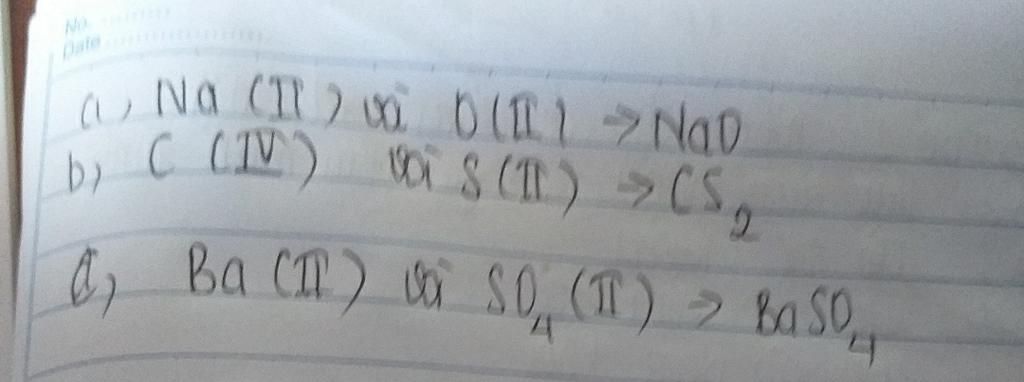 No.
Date
a, Na (II) với O(II) → NaO
b, C (IV) với S(II) → CS₂
d, Ba (II) với SO₄ (II) → BaSO₄